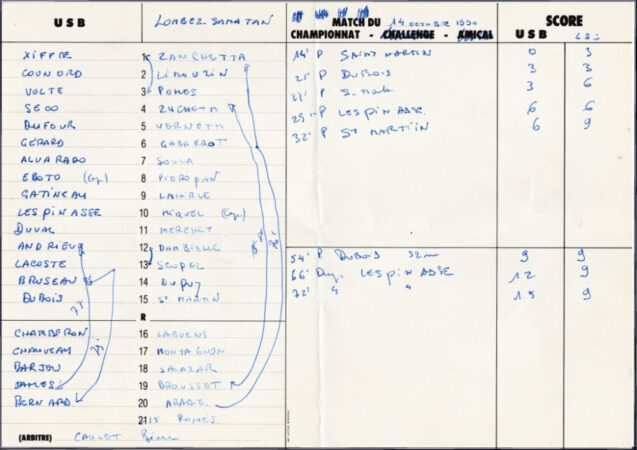 USB LOMBEZ-SAMATAN
MATCH DU 14 OCTOBRE 1990
CHAMPIONNAT - CHALLENGE - AMICAL
SCORE
USB LSC
XIFFRE 1 ZANCHETTA
COUNORD 2 LIMOUZIN
VOLTE 3 POMES
SECO 4 ZUCHETTI
DUFOUR 5 VERNETTI
GÉRARD 6 GABARROT
ALVARADO 7 SOULA
EBOTO (Cap) 8 PIDROPAN
GATINEAU 9 LAHILLE
LESPINASSE 10 MIQUEL (Cap)
DUVAL 11 MERCHET
ANDRIEUX 12 DAMBIELLE
LACOSTE 13 SEUPEL
BRUSEAU 14 DUPUY
DUBOIS 15 ST MARTIN
R
CHARBERON 16 LABUENS
CHAUVEAU 17 MONTAGNON
BARJOU 18 SALAZAR
JAMES 19 BROUSSET
BERNARD 20 ABADIE
21 15 POMES
(ARBITRE) CAULET
14' P SAINT MARTIN 0 3
21' P DUBOIS 3 3
27' P 3 6
29' P LESPINASSE 6 6
32' P ST MARTIN 6 9
54' P DUBOIS 32m 9 9
66' Drop LESPINASSE 12 9
72' " " 15 9